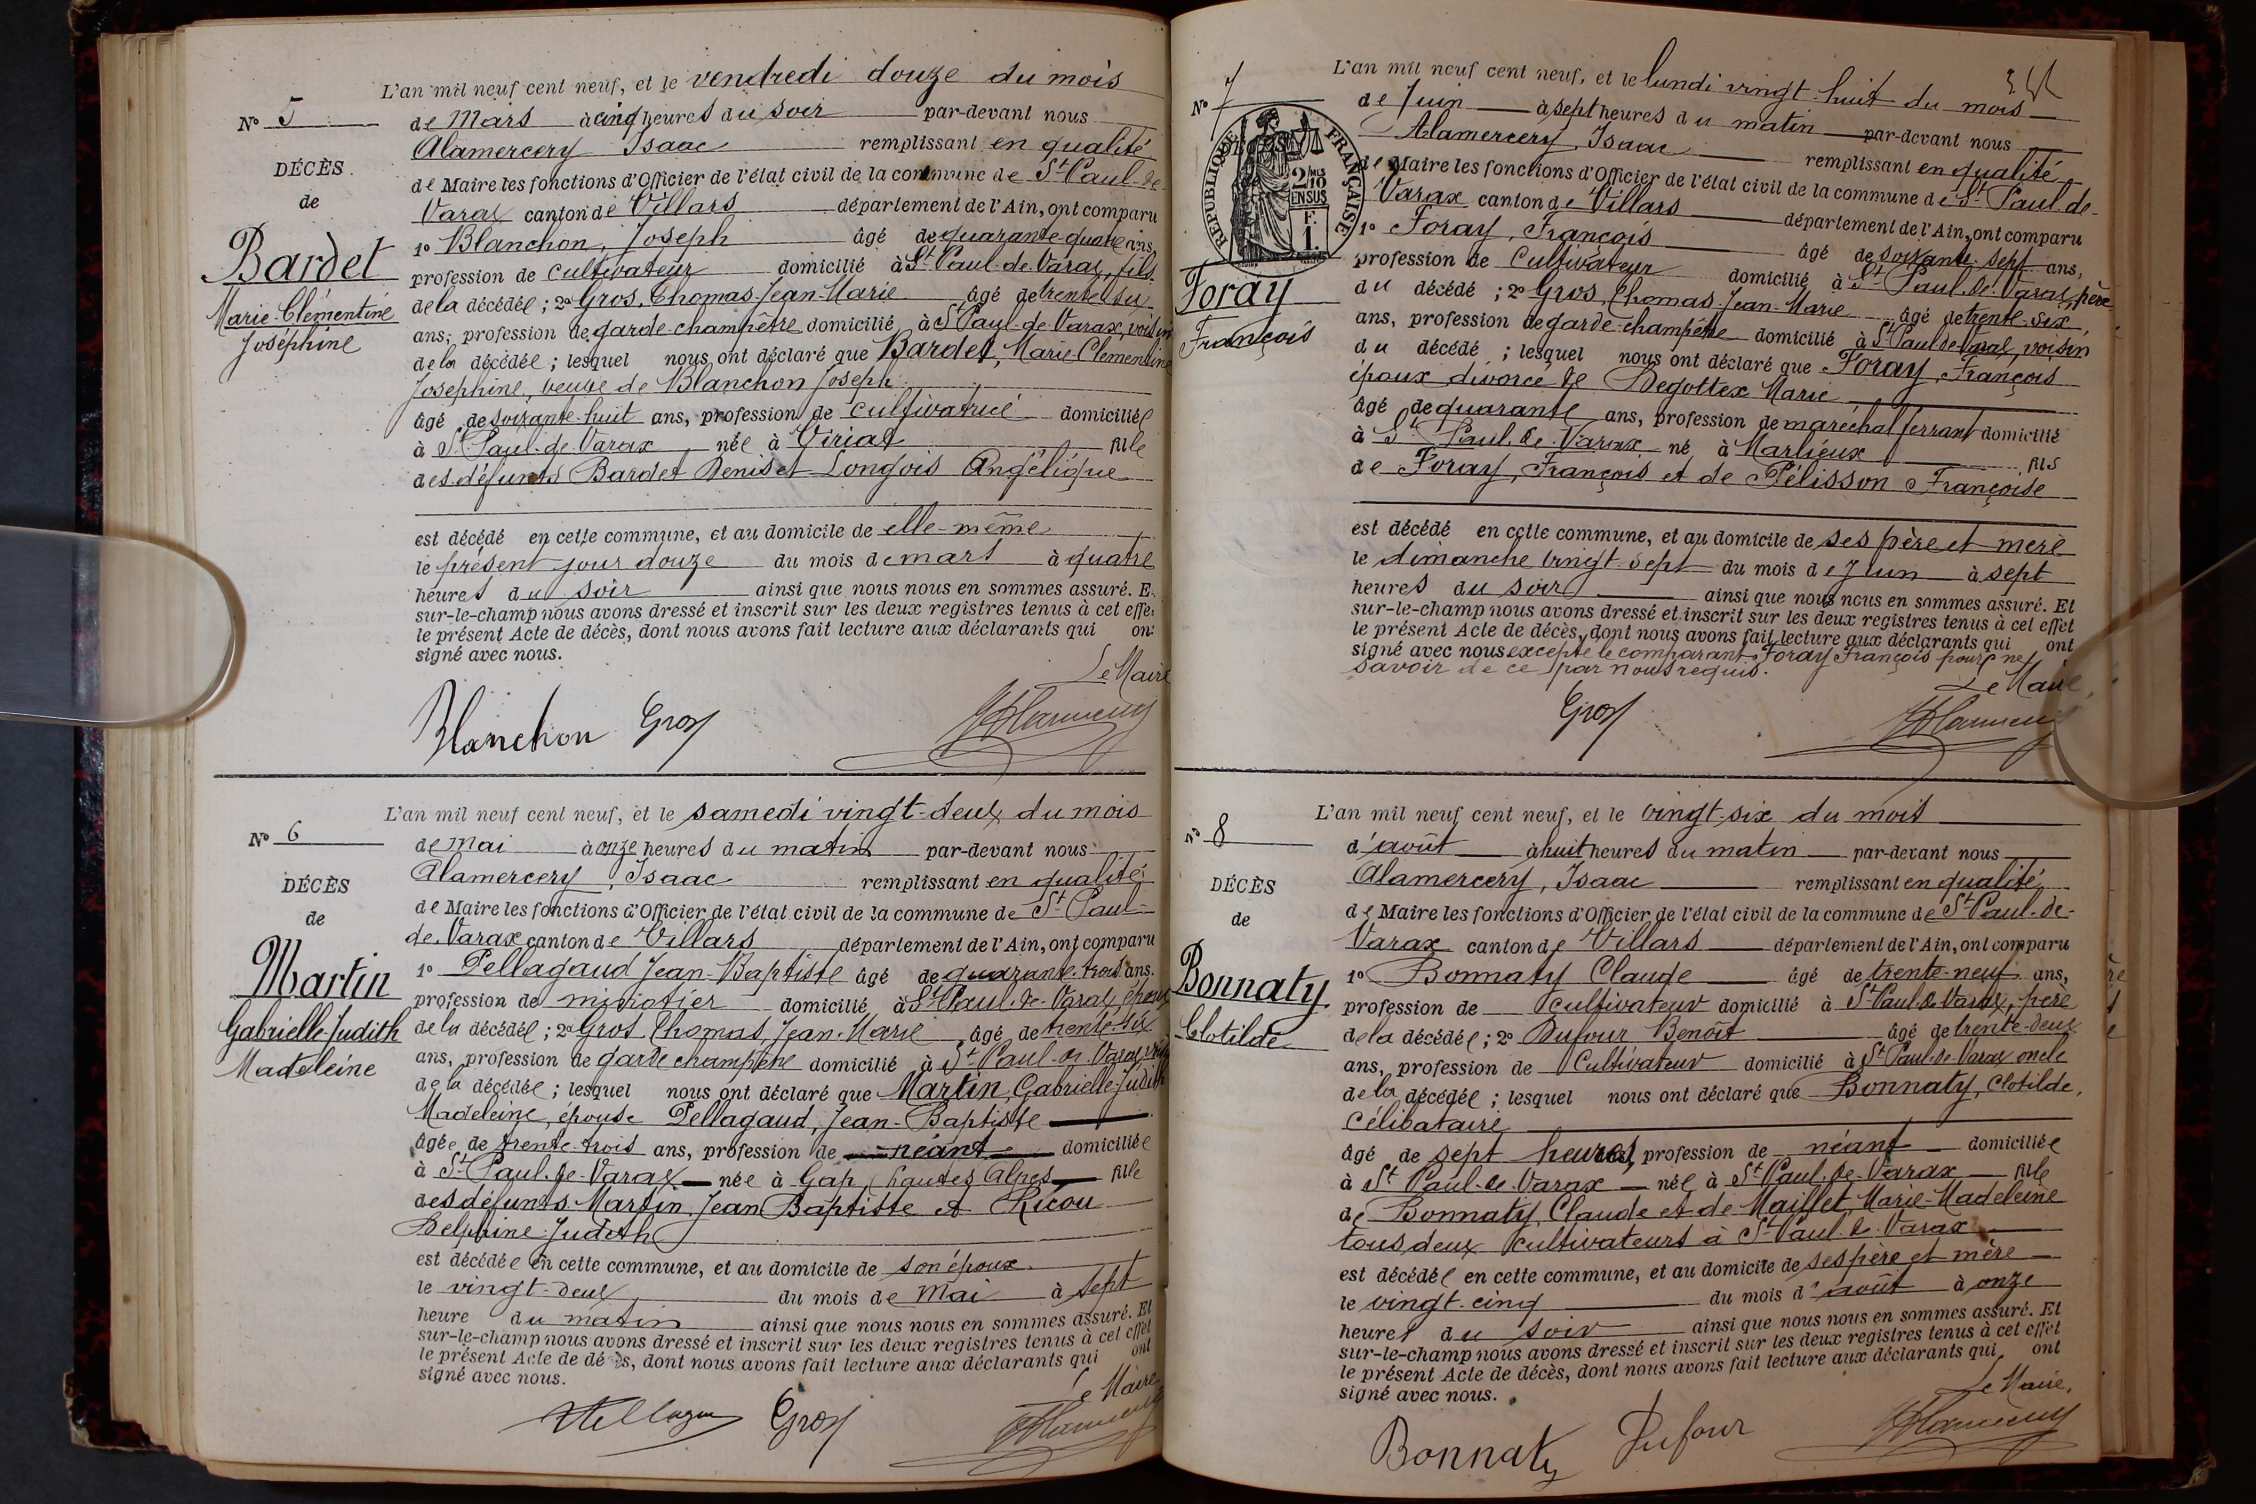 L'an mil neuf cent neuf, et le vendredi douze du mois
N° 5
de Mars à cinq heures du soir par-devant nous
Alamercery Isaac remplissant en qualité
DÉCÈS
de Maire les fonctions d'Officier de l'état civil de la commune de St Paul-de-
de
Varax canton de Villars département de l'Ain, ont comparu
Bardet
1° Blanchon, Joseph âgé de quarante-quatre ans,
profession de cultivateur domicilié à St Paul-de-Varax, fils
Marie-Clémentine
de la décédée ; 2° Gros, Thomas Jean-Marie âgé de trente six
Joséphine
ans, profession de garde-champêtre domicilié à St Paul-de-Varax, voisin
de la décédée ; lesquel nous ont déclaré que Bardet, Marie Clementine
Josephine, veuve de Blanchon Joseph
âgé de soixante-huit ans, profession de cultivatrice domiciliée
à St Paul-de-Varax née à Viriat fille
des défunts Bardet Denis et Longois Angélique
est décédé en cette commune, et au domicile de elle-même
le présent jour douze du mois de mars à quatre
heures du soir ainsi que nous nous en sommes assuré. E
sur-le-champ nous avons dressé et inscrit sur les deux registres tenus à cet effe
le présent Acte de décès, dont nous avons fait lecture aux déclarants qui on
signé avec nous.
Le Maire
Blanchon Gros
L'an mil neuf cent neuf, et le samedi vingt-deux du mois
N° 6
de Mai à onze heures du matin par-devant nous
Alamercery, Isaac remplissant en qualité
DÉCÈS
de Maire les fonctions d'Officier de l'état civil de la commune de St Paul-
de
de-Varax canton de Villars département de l'Ain, ont comparu
Martin
1° Pellagaud Jean-Baptiste âgé de quarante-trois ans.
profession de minotier domicilié à St Paul-de-Varax, époux
Gabrielle-Judith
de la décédée ; 2° Gros, Thomas, Jean-Marie âgé de trente-six
Madeleine
ans, profession de garde champêtre domicilié à St Paul-de-Varax,
de la décédée ; lesquel nous ont déclaré que Martin, Gabrielle-Judith
Madeleine, épouse Pellagaud, Jean-Baptiste
âgée de trente-trois ans, profession de néant domiciliée
à St Paul-de-Varax née à Gap, hautes Alpes fille
des défunts Martin, Jean Baptiste et Ricou
Delphine-Judith
est décédée en cette commune, et au domicile de son époux
le vingt-deux du mois de Mai à sept
heure du matin ainsi que nous nous en sommes assuré. Et
sur-le-champ nous avons dressé et inscrit sur les deux registres tenus à cet effet
le présent Acte de décès, dont nous avons fait lecture aux déclarants qui ont
signé avec nous.
Le Maire
Gros
L'an mil neuf cent neuf, et le lundi vingt-huit du mois
N° 7
de Juin à sept heures du matin par-devant nous
Alamercery, Isaac remplissant en qualité
RÉPUBLIQUE FRANÇAISE
2/10 EN SUS
F. 1.
de Maire les fonctions d'Officier de l'état civil de la commune de St Paul-de-
Varax canton de Villars département de l'Ain, ont comparu
1° Foray, François âgé de soixante-sept ans,
profession de Cultivateur domicilié à St Paul-de-Varax, père
Foray
du décédé ; 2° Gros, Thomas Jean-Marie âgé de trente-six
François
ans, profession de garde-champêtre domicilié à St Paul de Varax, voisin
du décédé ; lesquel nous ont déclaré que Foray, François
époux divorcé de Degottex Marie
âgé de quarante ans, profession de maréchal ferrant domicilié
à St Paul-de-Varax né à Marlieux fils
de Foray, François et de Pélisson Françoise
est décédé en cette commune, et au domicile de ses père et mère
le dimanche vingt-sept du mois de Juin à sept
heures du soir ainsi que nous nous en sommes assuré. Et
sur-le-champ nous avons dressé et inscrit sur les deux registres tenus à cet effet
le présent Acte de décès, dont nous avons fait lecture aux déclarants qui ont
signé avec nous excepté le comparant Foray François pour ne
savoir de ce par nous requis.
Le Maire,
Gros
L'an mil neuf cent neuf, et le vingt-six du mois
N° 8
d'août à huit heures du matin par-devant nous
Alamercery, Isaac remplissant en qualité
DÉCÈS
de Maire les fonctions d'Officier de l'état civil de la commune de St Paul-de-
de
Varax canton de Villars département de l'Ain, ont comparu
Bonnaty
1° Bonnaty Claude âgé de trente-neuf ans,
profession de cultivateur domicilié à St Paul de Varax, père
Clotilde
de la décédée ; 2° Dufour Benoît âgé de trente-deux
ans, profession de Cultivateur domicilié à St Paul-de-Varax oncle
de la décédée ; lesquel nous ont déclaré que Bonnaty, Clotilde,
Célibataire
âgé de sept heures, profession de néant domiciliée
à St Paul-de-Varax née à St Paul-de-Varax fille
de Bonnaty Claude et de Maillet, Marie-Madeleine
tous deux cultivateurs à St Paul-de-Varax
est décédée en cette commune, et au domicile de ses père et mère
le vingt-cinq du mois d'août à onze
heures du soir ainsi que nous nous en sommes assuré. Et
sur-le-champ nous avons dressé et inscrit sur les deux registres tenus à cet effet
le présent Acte de décès, dont nous avons fait lecture aux déclarants qui ont
signé avec nous.
Le Maire,
Bonnaty Dufour